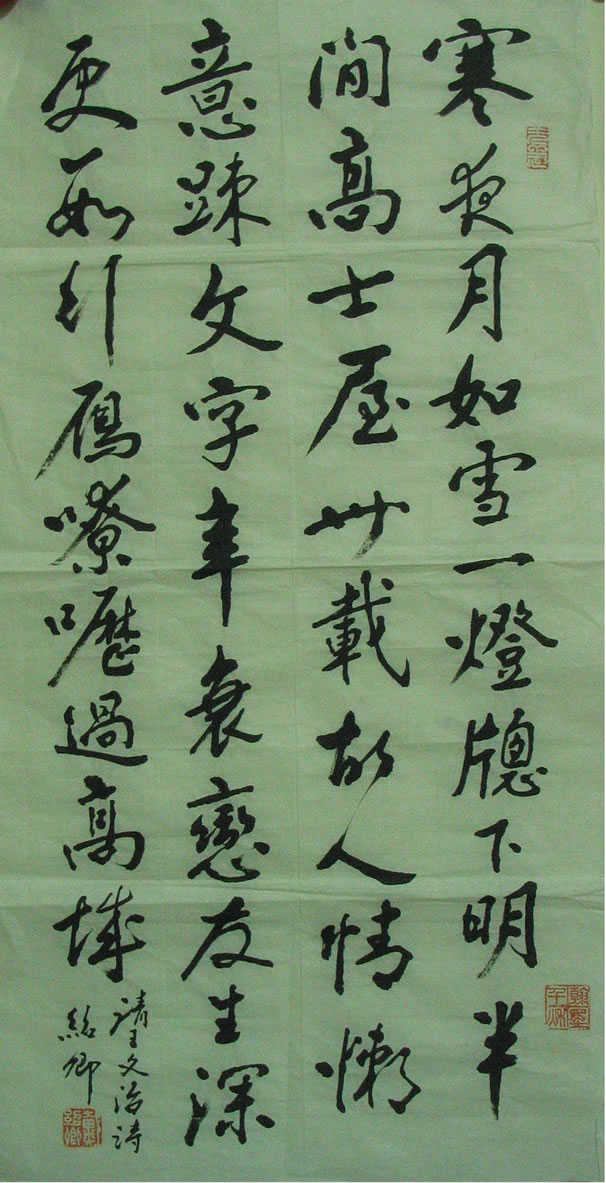 寒夜月如雪一燈牕下明半
间高士屋卅載故人情懶
意踈文字年衰戀友生深
更行鴈嘹嚦過高城
清王文治詩
紹卿